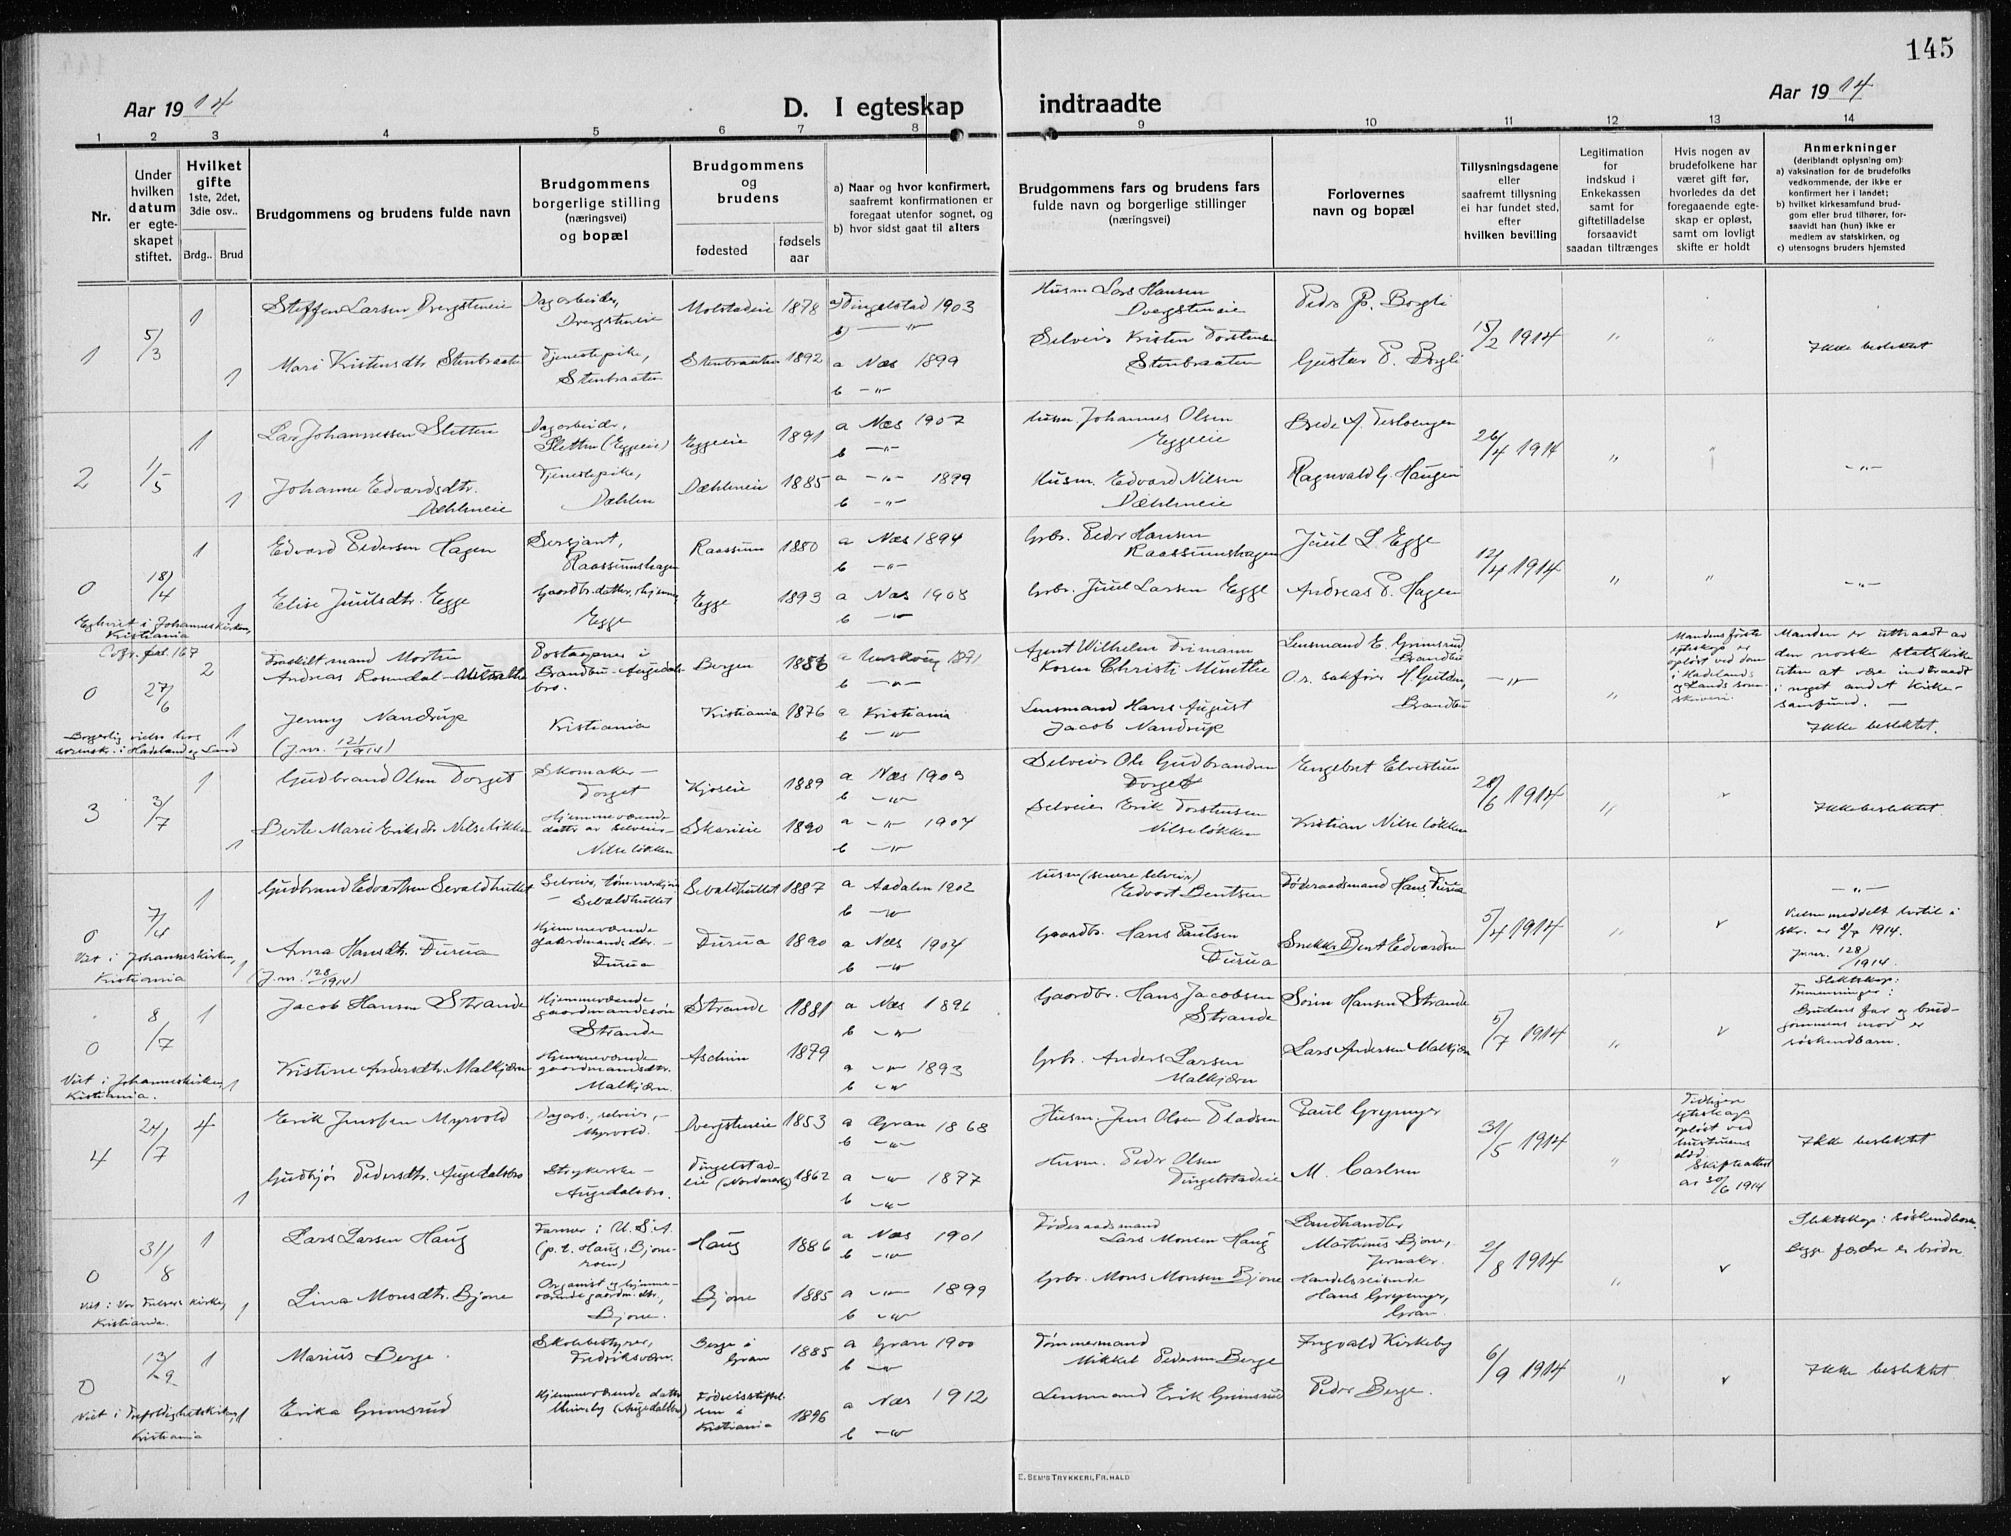 145
Aar 1914
D. I egteskap indtraadte
Aar 1914
1 2 3 4 5 6 7 8 9 10 11 12 13 14
Nr.
Under
hvilken
datum
er egte-
skapet
stiftet.
Hvilket
gifte
1ste, 2det,
3die osv..
Brdg.. Brud
Brudgommens og brudens fulde navn
Brudgommens
borgerlige stilling
(næringsvei)
og bopæl
Brudgommens
og
brudens
fødested
fødsels
aar
a) Naar og hvor konfirmert,
saafremt konfirmationen er
foregaat utenfor sognet, og
b) hvor sidst gaat til alters
Brudgommens fars og brudens fars
fulde navn og borgerlige stillinger
(næringsvei)
Forlovernes
navn og bopæl
Tillysningsdagene
eller
saafremt tillysning
ei har fundet sted,
efter
hvilken bevilling
Legitimation
for
indskud i
Enkekassen
samt for
giftetilladelse
forsaavidt
saadan tiltrænges
Hvis nogen av
brudefolkene har
været gift før,
hvorledes da det
foregaaende egte-
skap er opløst,
samt om lovligt
skifte er holdt
Anmerkninger
(deriblandt oplysning om):
a) vaksination for de brudefolks
vedkommende, der ikke er
konfirmert her i landet;
b) hvilket kirkesamfund brud-
gom eller brud tilhører, for-
saavidt han (hun) ikke er
medlem av statskirken, og
c) utensogns bruders hjemsted
1 5/3 1 Steffen Larsen Dvergsteneie
Dagarbeider,
Dvergsteneie
Molstadeie 1878 a) Tingelstad 1903
b) — " —
Husm Lars Hansen
Dvergsteneie
Peder P. Borgli
15/2 1914 " "
1 Mari Kristensdtr. Stenbraaten
Tjenestepike,
Stenbraaten
Stenbraaten 1892 a Næs 1899
b — " —
Selveier Kristen Torstensen
Stenbraaten
Gustav P. Borgli
Ikke beslektet
2 1/5 1 Lars Johannessen Sletten
Dagarbeider,
Sletten (Eggeeie)
Eggeeie 1891 a Næs 1907
b — " —
Husm Johannes Olsen
Eggeeie
26/4 1914 " "
1 Johanne Edvardsdtr.
Dæhleneie
Tjenestepike,
Dæhlen
Dæhleneie 1885 a — " — 1899
b — " —
Husm. Edvard Nilsen
Dæhleneie
Ragnvald G. Haugen
— " —
0 18/4 1 Edvard Pedersen Hagen
Sersjant,
Raassumshagen
Raassum 1880 a Næs 1894
b — " —
Grbr. Peder Hansen
Raassumshagen
Juul L. Egge
12/4 1914 " "
1 Elise Juulsdtr. Egge
Gaardbr.datter, hjemme
Egge
Egge 1893 a Næs 1908
b — " —
Grbr. Juul Larsen Egge
Andreas P. Hagen
— " —
Egteviet i Johanneskirken,
Kristiania
Cofr. fol. 167
0 27/6 2 Fraskilt mand Morten
Andreas Rosendal
Postaapner i
Brandbu - Augedals-
bro.
Bergen 1886
b — " —
Agent Wilhelm Frimann
Koren Christi Minthe
Lensmand E. Grimsrud
Brandbu
O.r. sakfører H. Gulden,
Brandbu
— " — "
Mandens første
egteskap er
opløst ved dom
i Hadelands
og Lands soren-
skriveri.
Manden er uttraadt av
den norske statskirke
uten at være indtraadt
i noget andet kirke-
samfund. —
Ikke beslektet.
1 Jenny Nandrup
(J.nr. 121/1914)
Kristiania
Kristiania 1876 a Kristiania
b — " —
Lensmand Hans August
Jacob Nandrup
Borgerlig vielse hos
sorensk. i Hadeland og Land
3 3/7 1 Gudbrand Olsen Torget
Skomaker —
Torget
Kjoseie 1889 a Næs 1903
b — " —
Selveier Ole Gudbrandsen
Torget
Engebret Elvestuen
28/6 1914 "
1 Berte Marie Eriksdtr. Nilseløkken
Hjemmeværende
datter av selveier -
Nilseløkken
Skarieie 1890 a — " — 1904
b — " —
Selveier Erik Torstensen
Nilseløkken
Kristian Nilseløkken
Ikke beslektet
0 7/4 1 Gudbrand Edvartsen Sevaldhullet
Selveier,
— Sevaldhullet
Sevaldhullet 1887 a Aadalen 1902
b — " —
Husm (senere selveier)
Edvart Bentsen
Føderaadsmand Hans Furua
5/4 1914 "
— " —
1 Anna Hansdtr. Furua
(J.nr. 128/1914)
Hjemmeværende
gaardmandsdtr. —
Furua
Furua 1890 a Næs 1904
b — " —
Gaardbr. Hans Paulsen
Furua
Snekker Bent Edvardsen
Vielse meddelt hertil i
skr. av 8/7 1914.
J.nr. 128/1914.
Viet i Johanneskirken,
Kristiania
0 8/7 1 Jacob Hansen Strande
Hjemmeværende
gaardmandssøn
Strande
Strande 1881 a Næs 1896
b — " —
Gaardbr. Hans Jacobsen
Strande
Søren Hansen Strande
5/7 1914 "
Slektskap:
Tremenninger:
Brudens far og brud-
gommens mor er
søskendbarn.
1 Kristine Andersdtr. Malkjærn
Hjemmeværende
gaardmandsdtr.
Malkjærn.
Aschim 1879 a — " — 1893
b — " —
Grbr. Anders Larsen
Malkjærn
Lars Andersen Malkjærn
Viet i Johanneskirken,
Kristiania.
4 24/7 4 Erik Jenssen Myrvold
Dagarb., selveier, —
Myrvold.
Dvergsteneie 1853 a Gran 1868
b — " —
Husm. Jens Olsen Pladsen
Paul Grymyr
31/5 1914 "
Tidligere
egteskap
opløst ved
hustruens
død.
Skifteattest
av 30/6 1914
Ikke beslektet
1 Gudbjør Pedersdtr. Augedalsbro
Strykerske —
Augedalsbro.
Tingelstad-
eie (Nordmarka) 1862 a — " — 1877
b — " —
Husm. Peder Olsen
Tingelstadeie
M. Carlsen
0 31/8 1 Lars Larsen Haug
Farmer i U.S.A
(p.t. Haug, Bjone-
roen)
Haug 1886 a Næs 1901
b — " —
Føderaadsmand
Lars Monsen Haug
Landhandler
Martinus Bjone,
Jevnaker.
2/8 1914 "
Slektskap: søskendbarn.
Begge fædre er brødre.
1 Lina Monsdtr. Bjone
Organist og hjemme-
værende gaardm. dtr.,
Bjone.
Bjone 1885 a — " — 1899
b — " —
Grbr. Mons Monsen Bjone
Handelsreisende
Hans Grymyr,
Gran.
Viet i Vor Frelsers kirke,
Kristiania.
0 13/9 1 Marius Berge.
Skolebestyrer,
Fredriksværn.
Berge i
Gran 1885 a Gran 1900
b — " —
Tømmermand
Mikkel Pedersen Berge
Ingvald Kirkeby
6/9 1914 "
Ikke beslektet
1 Erika Grimsrud
Hjemmeværende datter
(Augedalsbro)
Fødselsstiftel-
sen i
Kristiania 1896 a Næs 1912
b — " —
Lensmand Erik Grimsrud
Peder Berge.
Viet i Trefoldighetskirken,
Kristiania
E. SEM'S TRYKKERI, FR.HALD